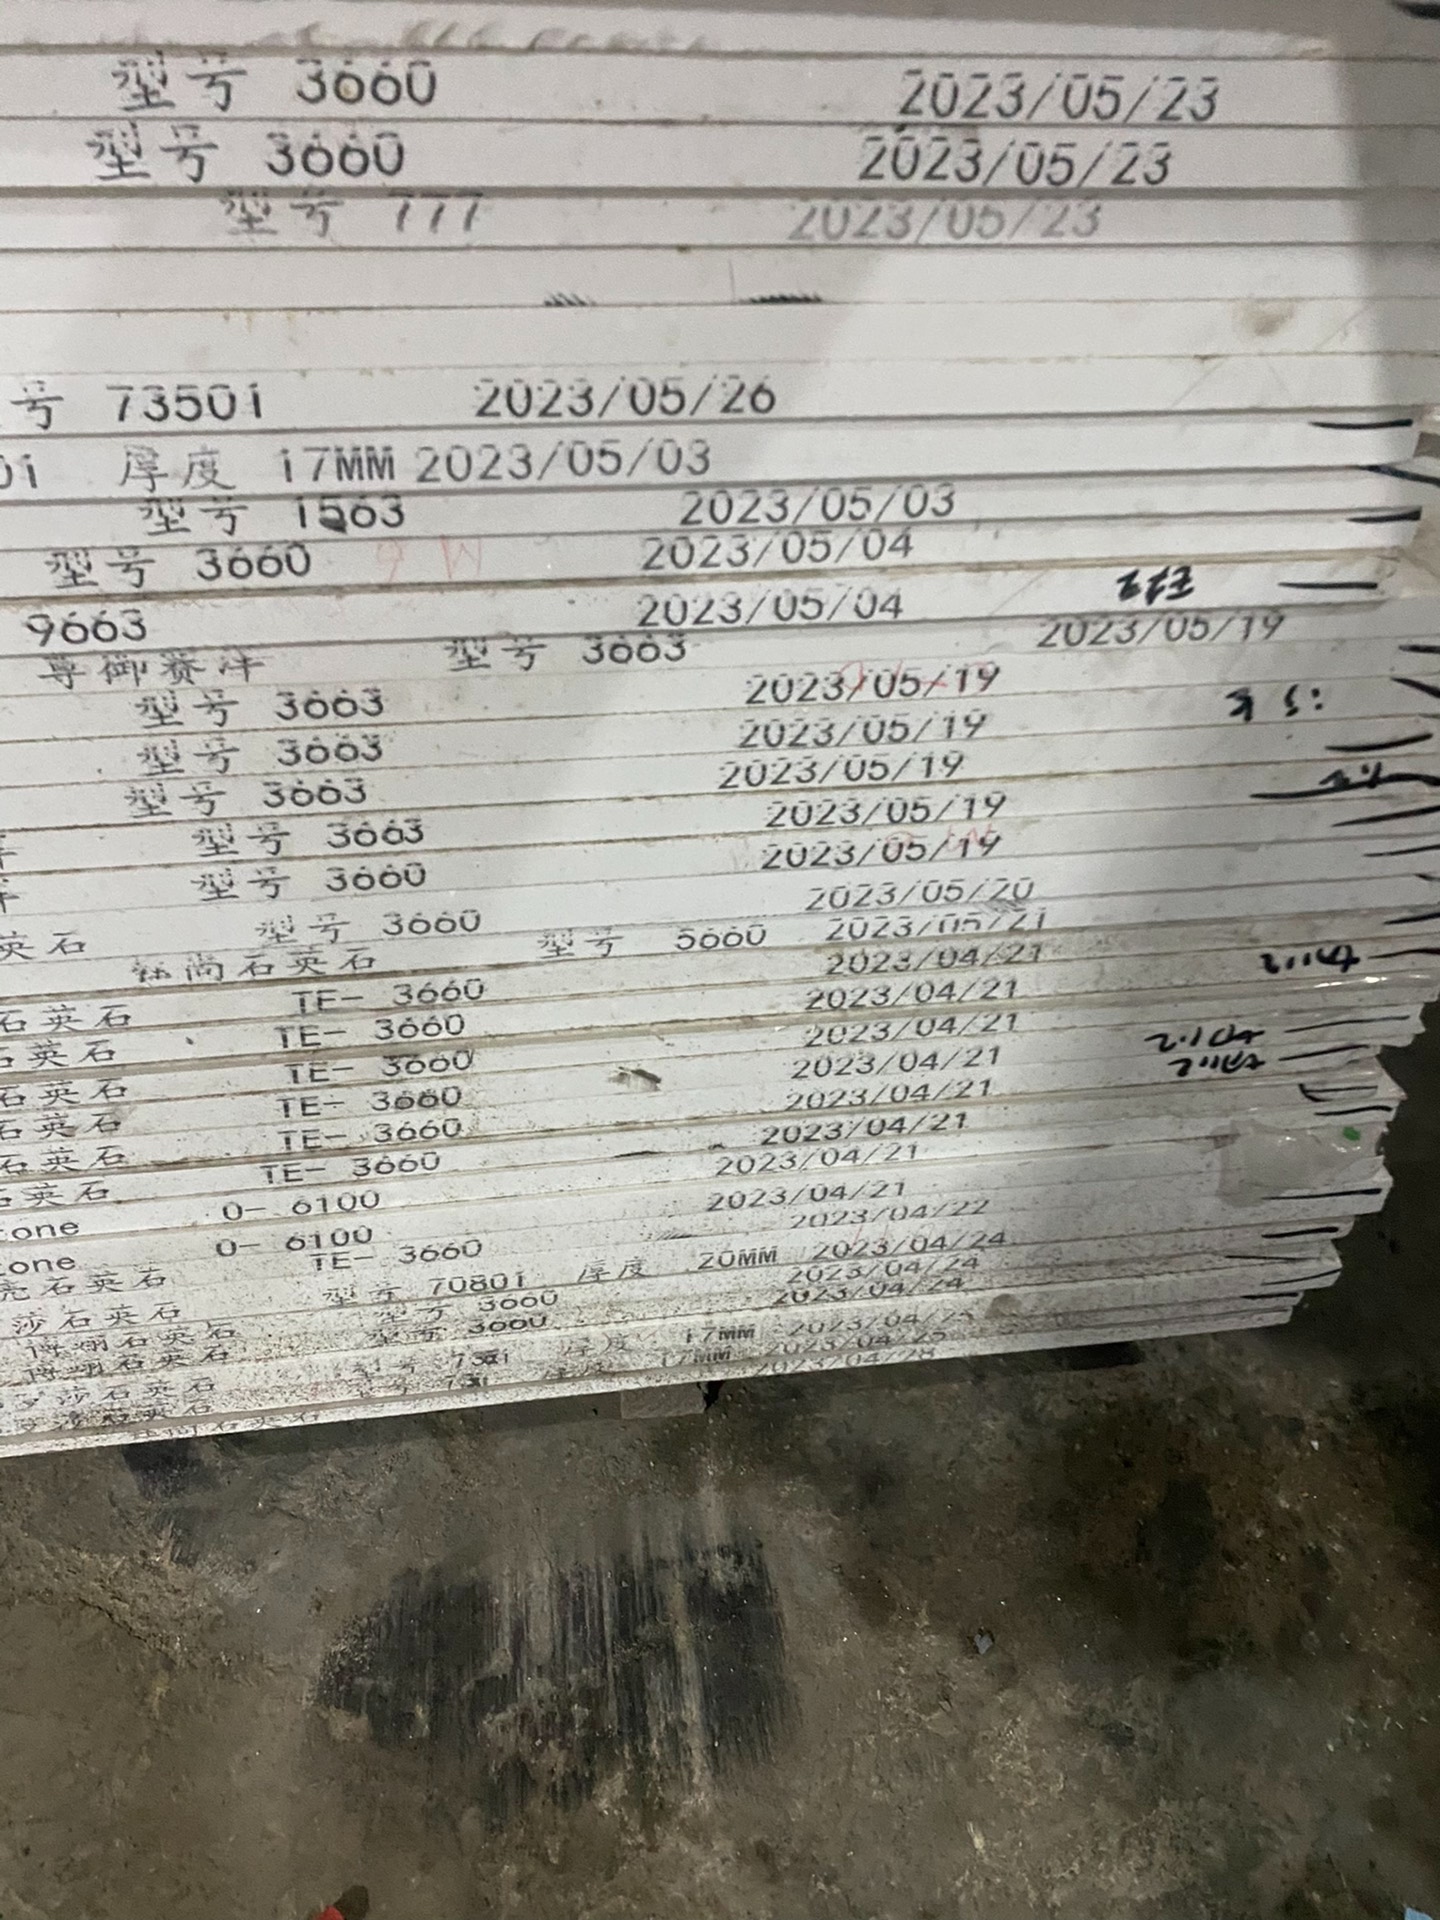 型号 3660 2023/05/23
型号 3660 2023/05/23
型号 777 2023/05/23
号 73501 2023/05/26
01 厚度 17MM 2023/05/03
型号 1563 2023/05/03
型号 3660 2023/05/04
9663 2023/05/04
尊御赛洋 型号 3663 2023/05/19
型号 3663 2023/05/19
型号 3663 2023/05/19
型号 3663 2023/05/19
型号 3663 2023/05/19
型号 3660 2023/05/19
英石 型号 3660 2023/05/20
尚石英石 型号 5660 2023/05/21
石英石 TE- 3660 2023/04/21
石英石 TE- 3660 2023/04/21
石英石 TE- 3660 2023/04/21
石英石 TE- 3660 2023/04/21
石英石 TE- 3660 2023/04/21
石英石 TE- 3660 2023/04/21
tone 0- 6100 2023/04/21
tone 0- 6100 2023/04/21
亮石英石 TE- 3660 2023/04/22
莎石英石 型号 70801 厚度 20MM 2023/04/24
博翊石英石 型号 3660 2023/04/24
博翊石英石 型号 3660 2023/04/24
莎石英石 型号 厚度 17MM
石英石 17MM
石英石 2023/04/28